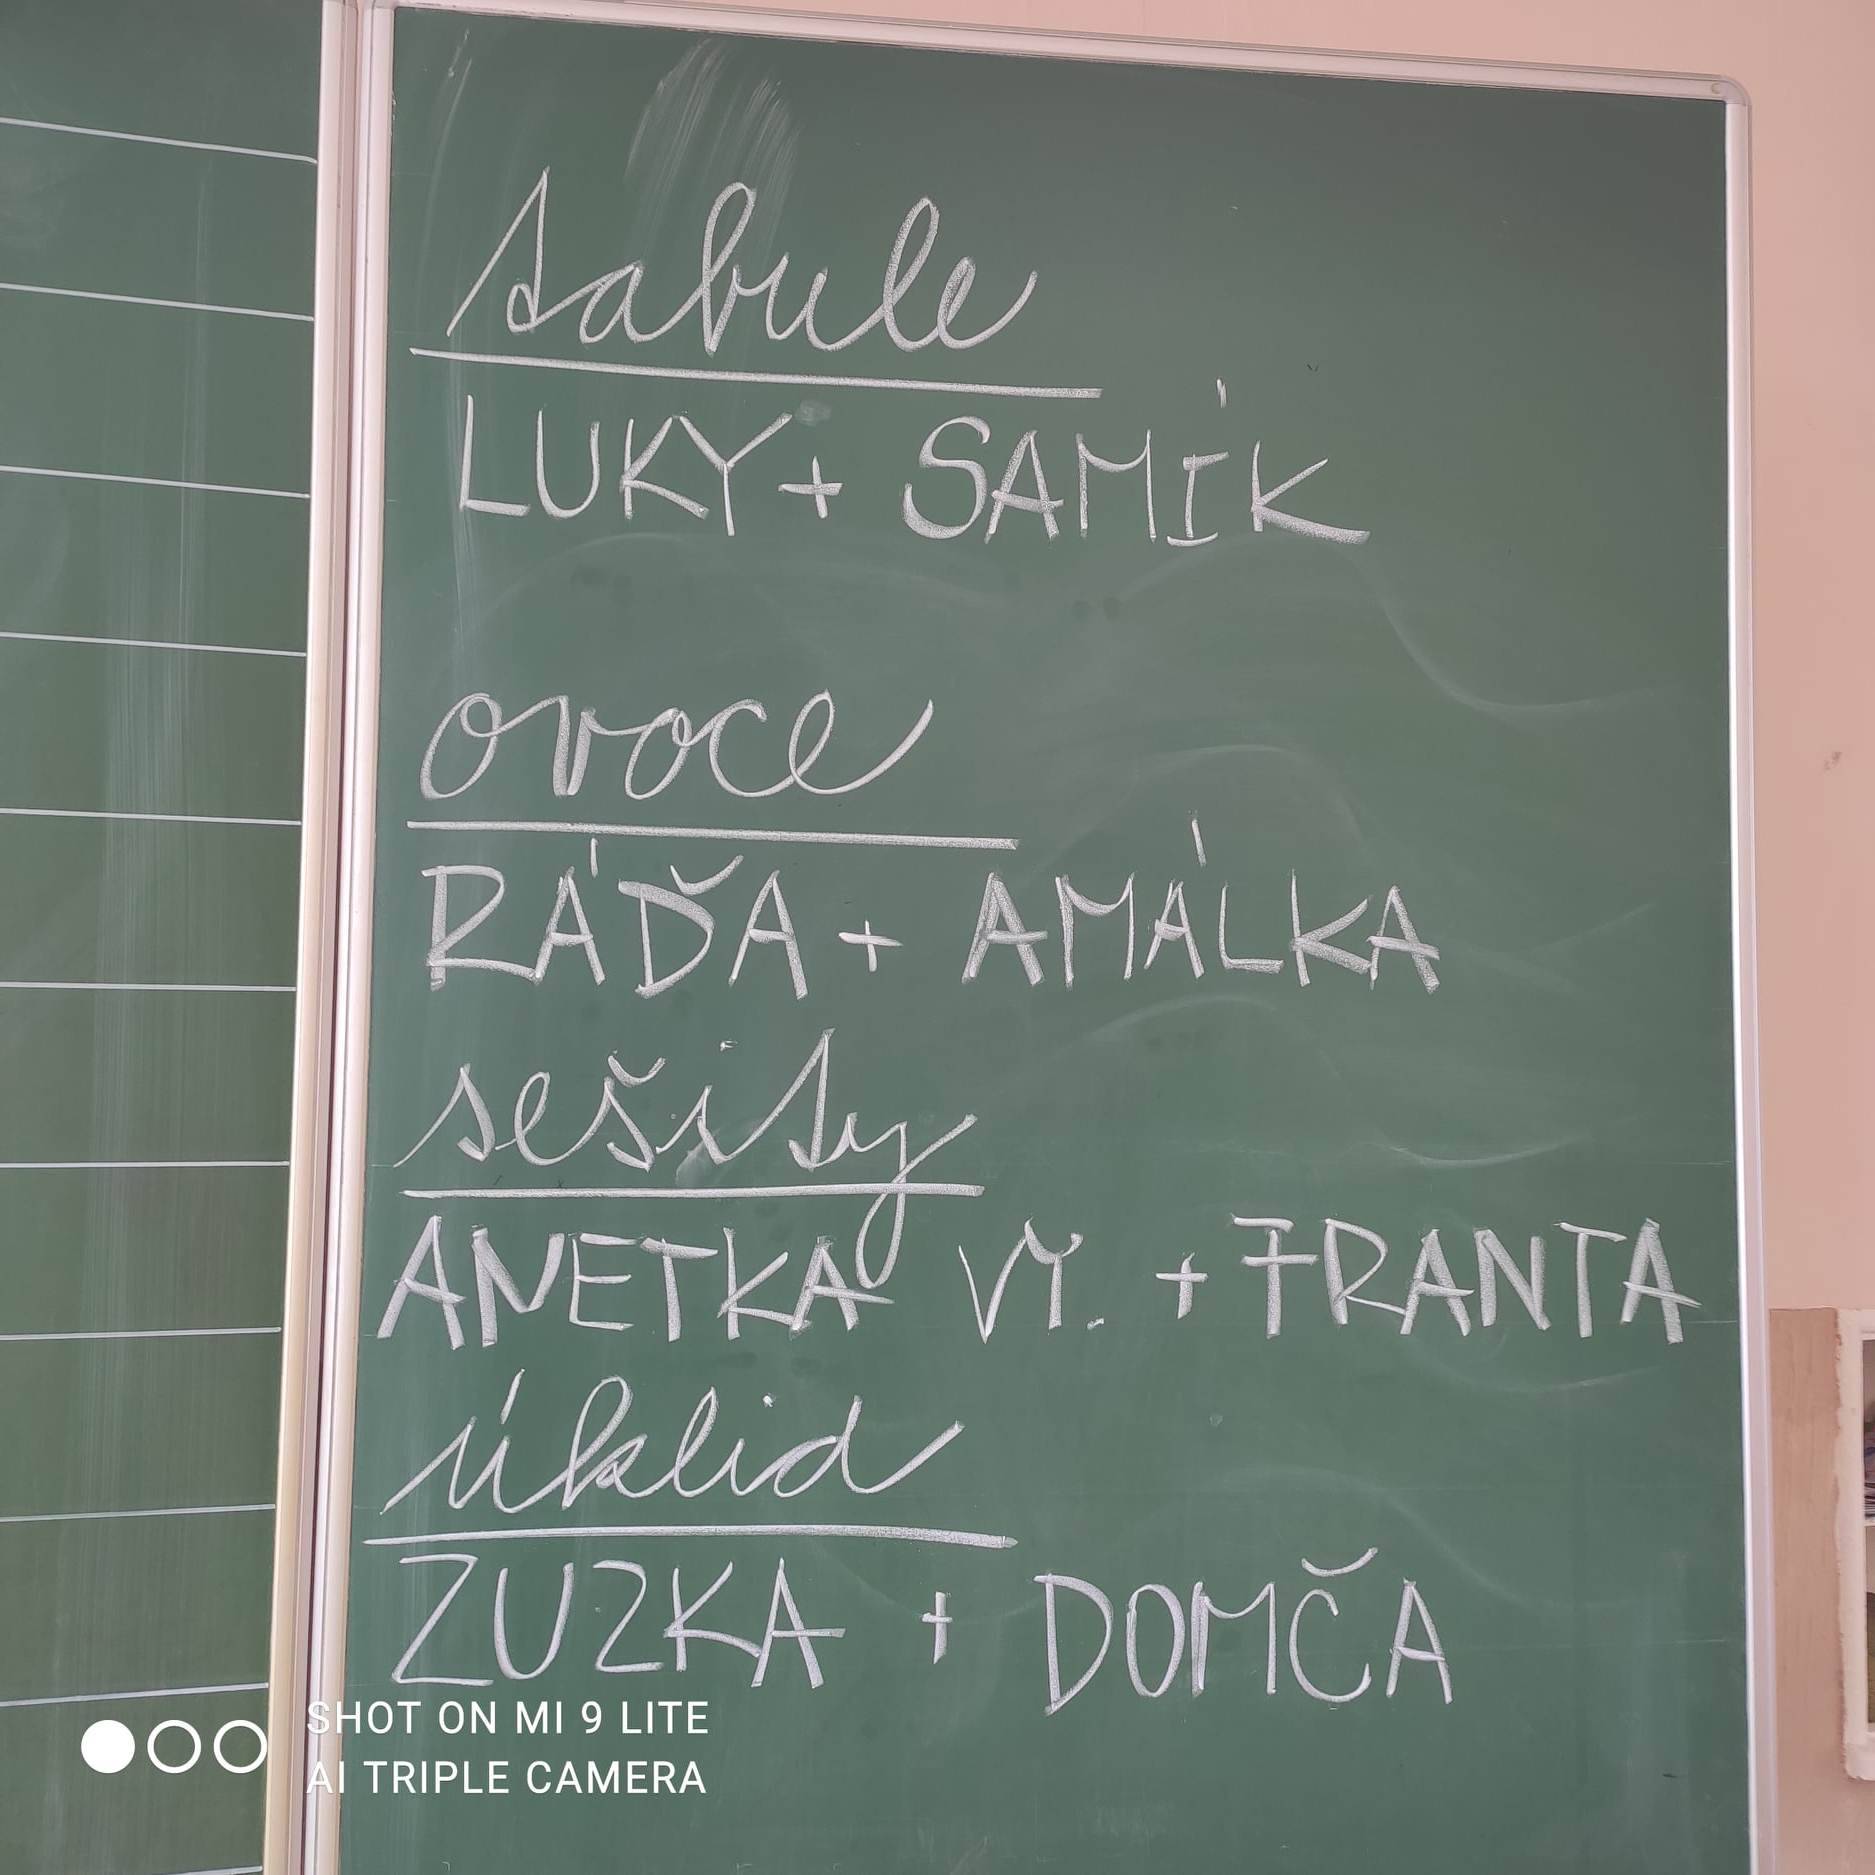 tabule
LUKY + SAMÍK
ovoce
RÁĎA + AMÁLKA
sešity
ANETKA VY. + FRANTA
úklid
ZUZKA + DOMČA
SHOT ON MI 9 LITE
AI TRIPLE CAMERA